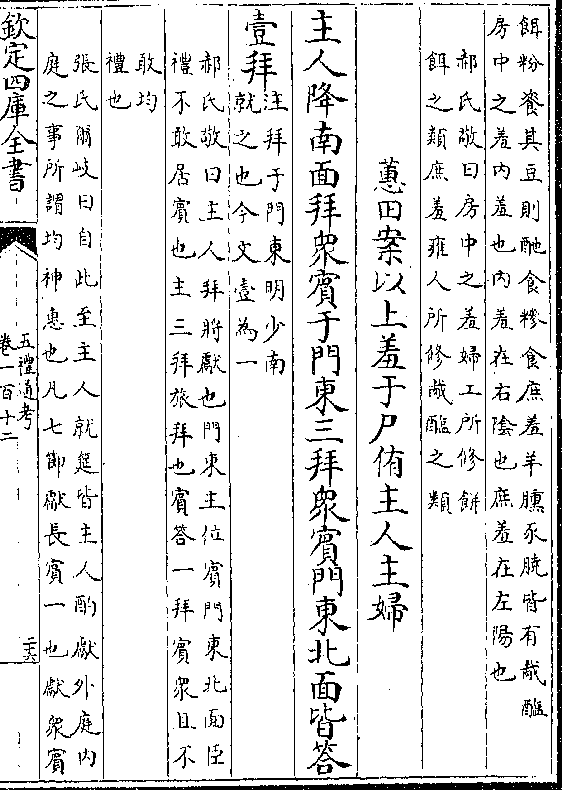 餌粉餈其豆則酏食糝食庶羞羊臐豕膮皆有胾醢
房中之羞内羞也内羞在右陰也庶羞在左陽也
郝氏敬曰房中之羞婦工所修餅
餌之類庶羞雍人所修胾醢之類
蕙田案以上羞于尸侑主人主婦
主人降南面拜衆賓于門東三拜衆賓門東北面皆答
壹拜
注拜于門東明少南
就之也今文壹為一
郝氏敬曰主人拜將獻也門東主位賓門東北面臣
禮不敢居賓也主三拜旅拜也賓答一拜賓衆且不
敢均
禮也
張氏爾岐曰自此至主人就筵皆主人酌獻外庭内
庭之事所謂均神惠也凡七節獻長賓一也獻衆賓
欽定四庫全書
五禮通考
卷一百十二
二六